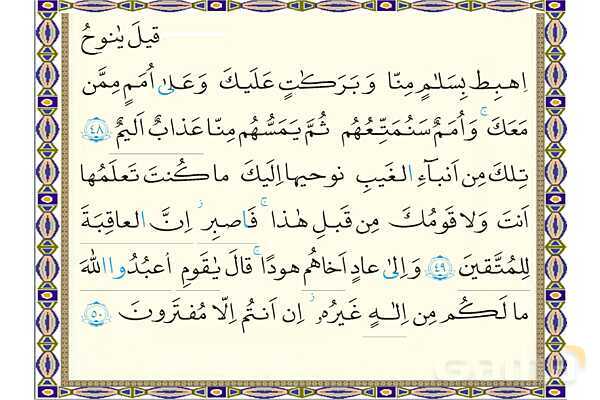 قيلَ يٰنوحُ
اهبِط بِسَلٰمٍ مِنّا وَبَرَكٰتٍ عَلَيكَ وَعَلىٰ أُمَمٍ مِمَّن
مَعَكَ ۚ وَأُمَمٌ سَنُمَتِّعُهُم ثُمَّ يَمَسُّهُم مِنّا عَذابٌ أَليمٌ ﴿٤٨﴾
تِلكَ مِن أَنباءِ الغَيبِ نوحيها إِلَيكَ ما كُنتَ تَعلَمُها
أَنتَ وَلا قَومُكَ مِن قَبلِ هٰذا ۖ فَاصبِر ۖ إِنَّ العاقِبَةَ
لِلمُتَّقينَ ﴿٤٩﴾ وَإِلىٰ عادٍ أَخاهُم هودًا ۚ قالَ يٰقَومِ اعبُدُوا اللَّهَ
ما لَكُم مِن إِلٰهٍ غَيرُهُ ۖ إِن أَنتُم إِلّا مُفتَرونَ ﴿٥٠﴾